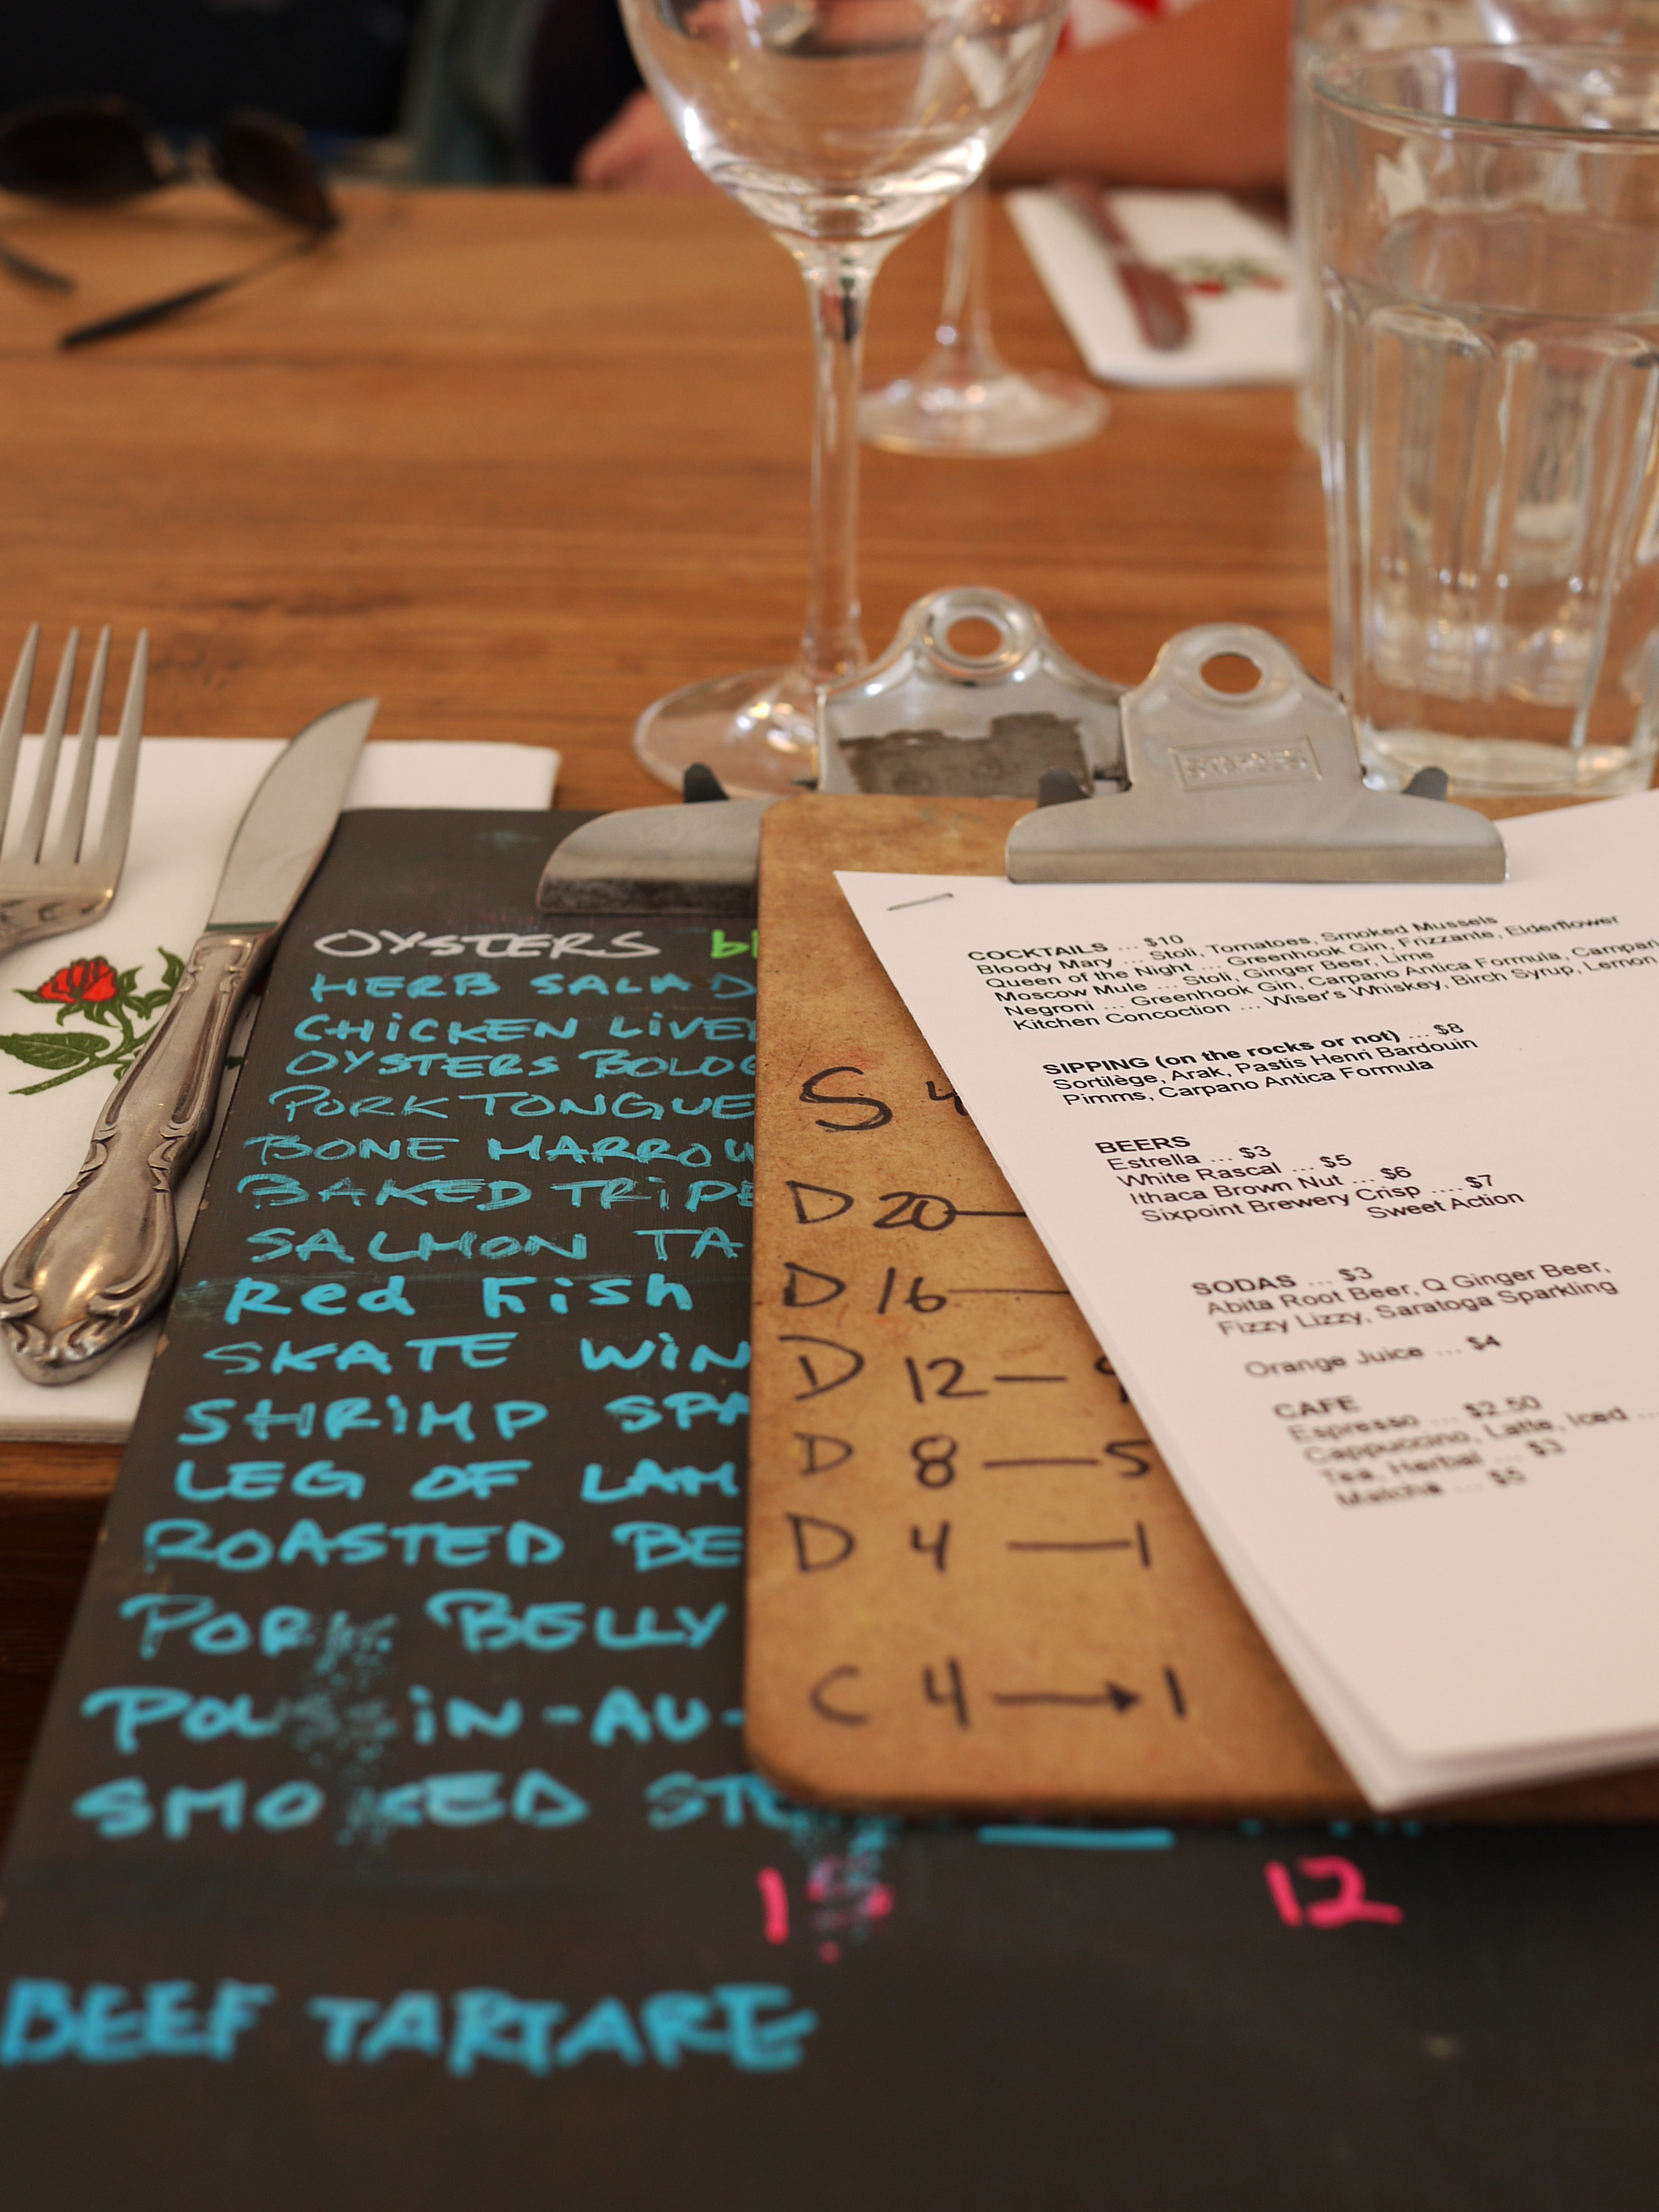 OYSTERS
HERB SALAD
CHICKEN LIVE
OYSTERS BOLOG
PORK TONGUE
BONE MARROW
BAKED TRIPE
SALMON TA
Red Fish
SKATE WIN
SHRIMP SPA
LEG OF LAM
ROASTED BE
PORK BELLY
IN-AU-
SMOKED ST
12
BEEF TARTARE
S 4
D 20—
D 16—
D 12—9
D 8—5
D 4—1
C 4→1
COCKTAILS ... $10
Bloody Mary ... Stoli, Tomatoes, Smoked Mussels
Queen of the Night ... Greenhook Gin, Frizzante, Elderflower
Moscow Mule ... Stoli, Ginger Beer, Lime
Negroni ... Greenhook Gin, Carpano Antica Formula, Campari
Kitchen Concoction ... Wiser's Whiskey, Birch Syrup, Lemon
SIPPING (on the rocks or not) ... $8
Sortilège, Arak, Pastis Henri Bardouin
Pimms, Carpano Antica Formula
BEERS
Estrella ... $3
White Rascal ... $5
Ithaca Brown Nut ... $6
Sixpoint Brewery Crisp .... $7
Sweet Action
SODAS ... $3
Abita Root Beer, Q Ginger Beer,
Fizzy Lizzy, Saratoga Sparkling
Orange Juice ... $4
CAFE
Espresso ... $2.50
Cappuccino, Latte, Iced ...
Tea, Herbal ... $3
Matcha ... $5